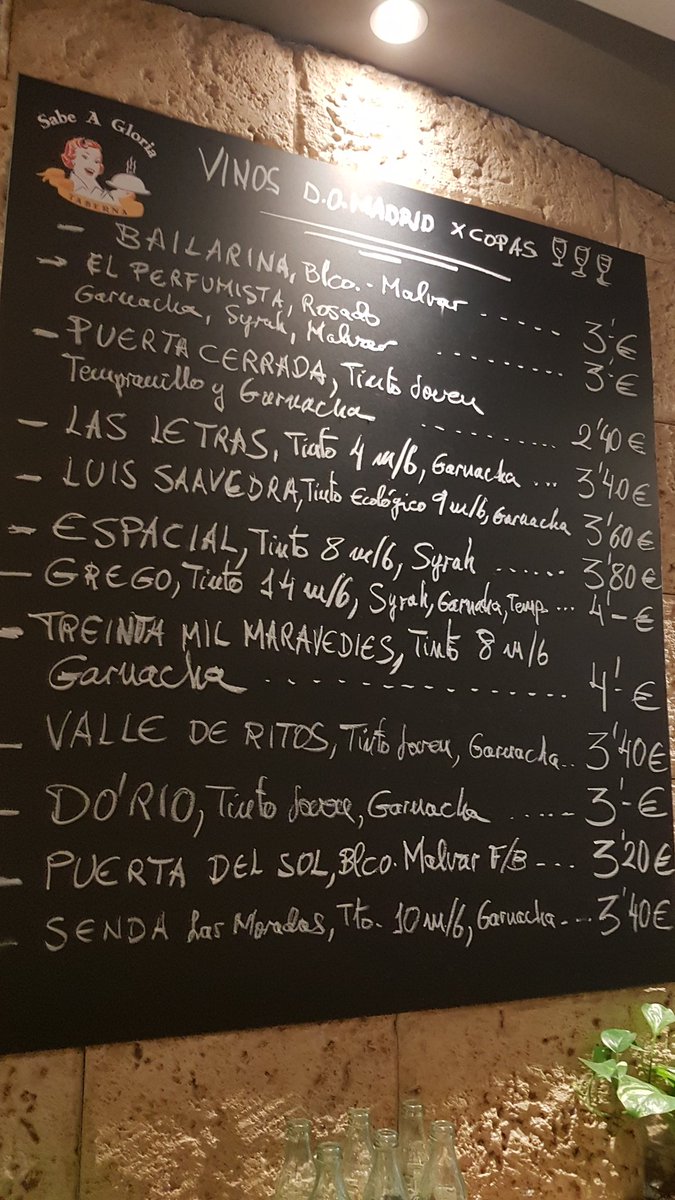 Sabe A Gloria
TABERNA
VINOS D.O. MADRID X COPAS
- BAILARINA, Blco.- Malvar ...... 3'-€
→ EL PERFUMISTA, Rosado
Garnacha, Syrah, Malvar ......... 3'-€
- PUERTA CERRADA, Tinto Joven
Tempranillo y Garnacha .......... 2'40€
- LAS LETRAS, Tinto 4 m/b, Garnacha ... 3'40€
- LUIS SAAVEDRA, Tinto Ecológico 9 m/b, Garnacha 3'60€
- ESPACIAL, Tinto 8 m/b, Syrah ...... 3'80€
- GREGO, Tinto 14 m/b, Syrah, Garnacha, Temp. ... 4'-€
- TREINTA MIL MARAVEDIES, Tinto 8 m/b
Garnacha - - - - - - - - - - - - - - 4'-€
- VALLE DE RITOS, Tinto Joven, Garnacha .. 3'40€
- DO'RIO, Tinto Joven, Garnacha ...... 3'-€
- PUERTA DEL SOL, Blco. Malvar F/B - - - 3'20€
- SENDA Las Moradas, Tto. 10 m/b, Garnacha - - - 3'40€